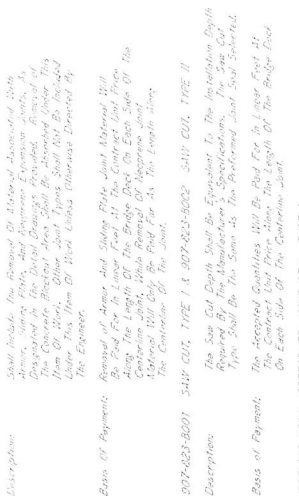 Description: Shall Include The Removal Of Material Associated With
Armor, Sliding Plate, And Neoprene Expansion Joints, As
Designated In The Detail Drawings Provided. Removal of
The Concrete Blockout Area Shall Be Absorbed Under This
Item Of Work. Other Joint Types Shall Not Be Included
Under This Item Of Work Unless Otherwise Directed By
The Engineer.
Basis Of Payment: Removal of Armor And Sliding Plate Joint Material Will
Be Paid For In Linear Feet At The Contract Unit Price
Along The Length Of The Bridge Deck On Each Side Of The
Centerline Joint, While Removal Of Neoprene Joint
Material Will Only Be Paid For As The Length Along
The Centerline Of The Joint.
907-823-B001 SAW CUT, TYPE I & 907-823-B002 SAW CUT, TYPE II
Description: The Saw Cut Depth Shall Be Equivalent To The Installation Depth
Required By The Manufacturer's Specifications. The Saw Cut
Type Shall Be The Same As The Preformed Joint Seal Selected.
Basis of Payment: The Accepted Quantities Will Be Paid For In Linear Feet At
The Contract Unit Price Along The Length Of The Bridge Deck
On Each Side Of The Centerline Joint.